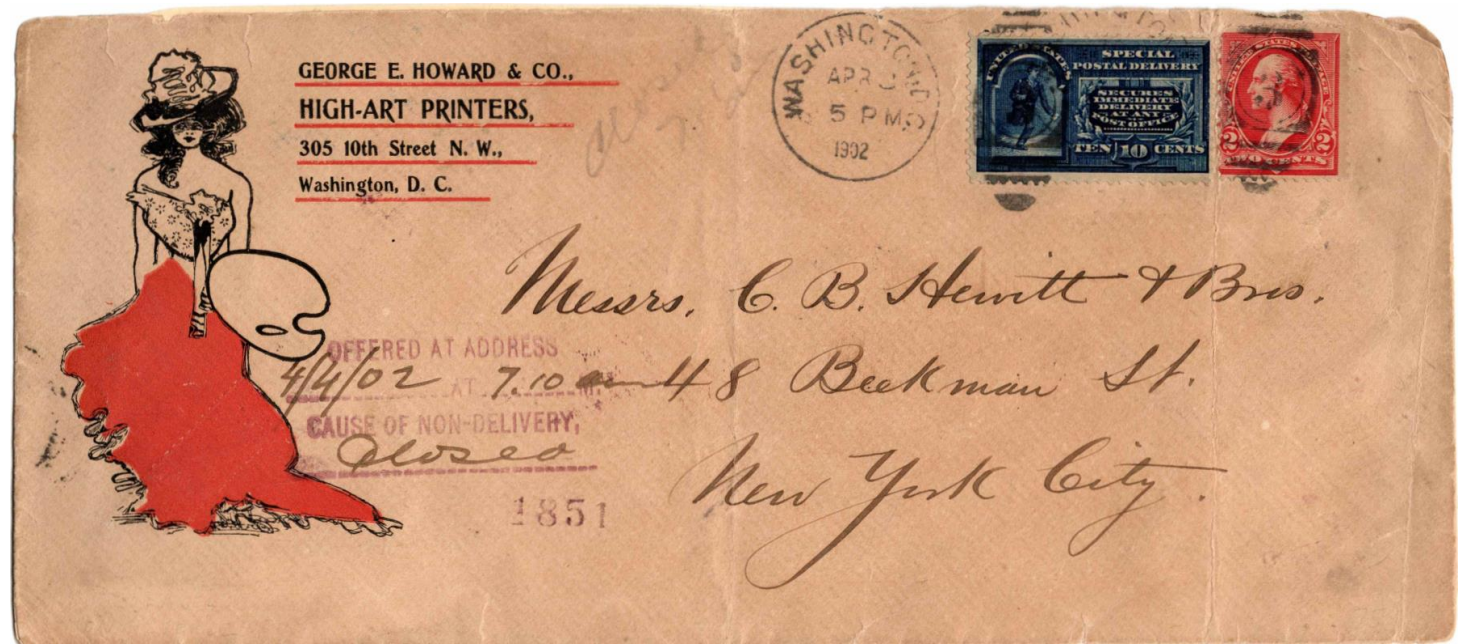 GEORGE E. HOWARD & CO.,
HIGH-ART PRINTERS,
305 10th Street N. W.,
Washington, D. C.
WASHINGTON, D.C.
APR 3
5 PM
1902
UNITED STATES
SPECIAL
POSTAL DELIVERY
SECURES
IMMEDIATE
DELIVERY
AT ANY
POST OFFICE
TEN 10 CENTS
UNITED STATES POSTAGE
2 2
TWO CENTS
Messrs. C. B. Hewitt & Bros.
48 Beekman St.
New York City.
OFFERED AT ADDRESS
4/4/02 AT 7.10 am M.
CAUSE OF NON-DELIVERY,
Closed
1851